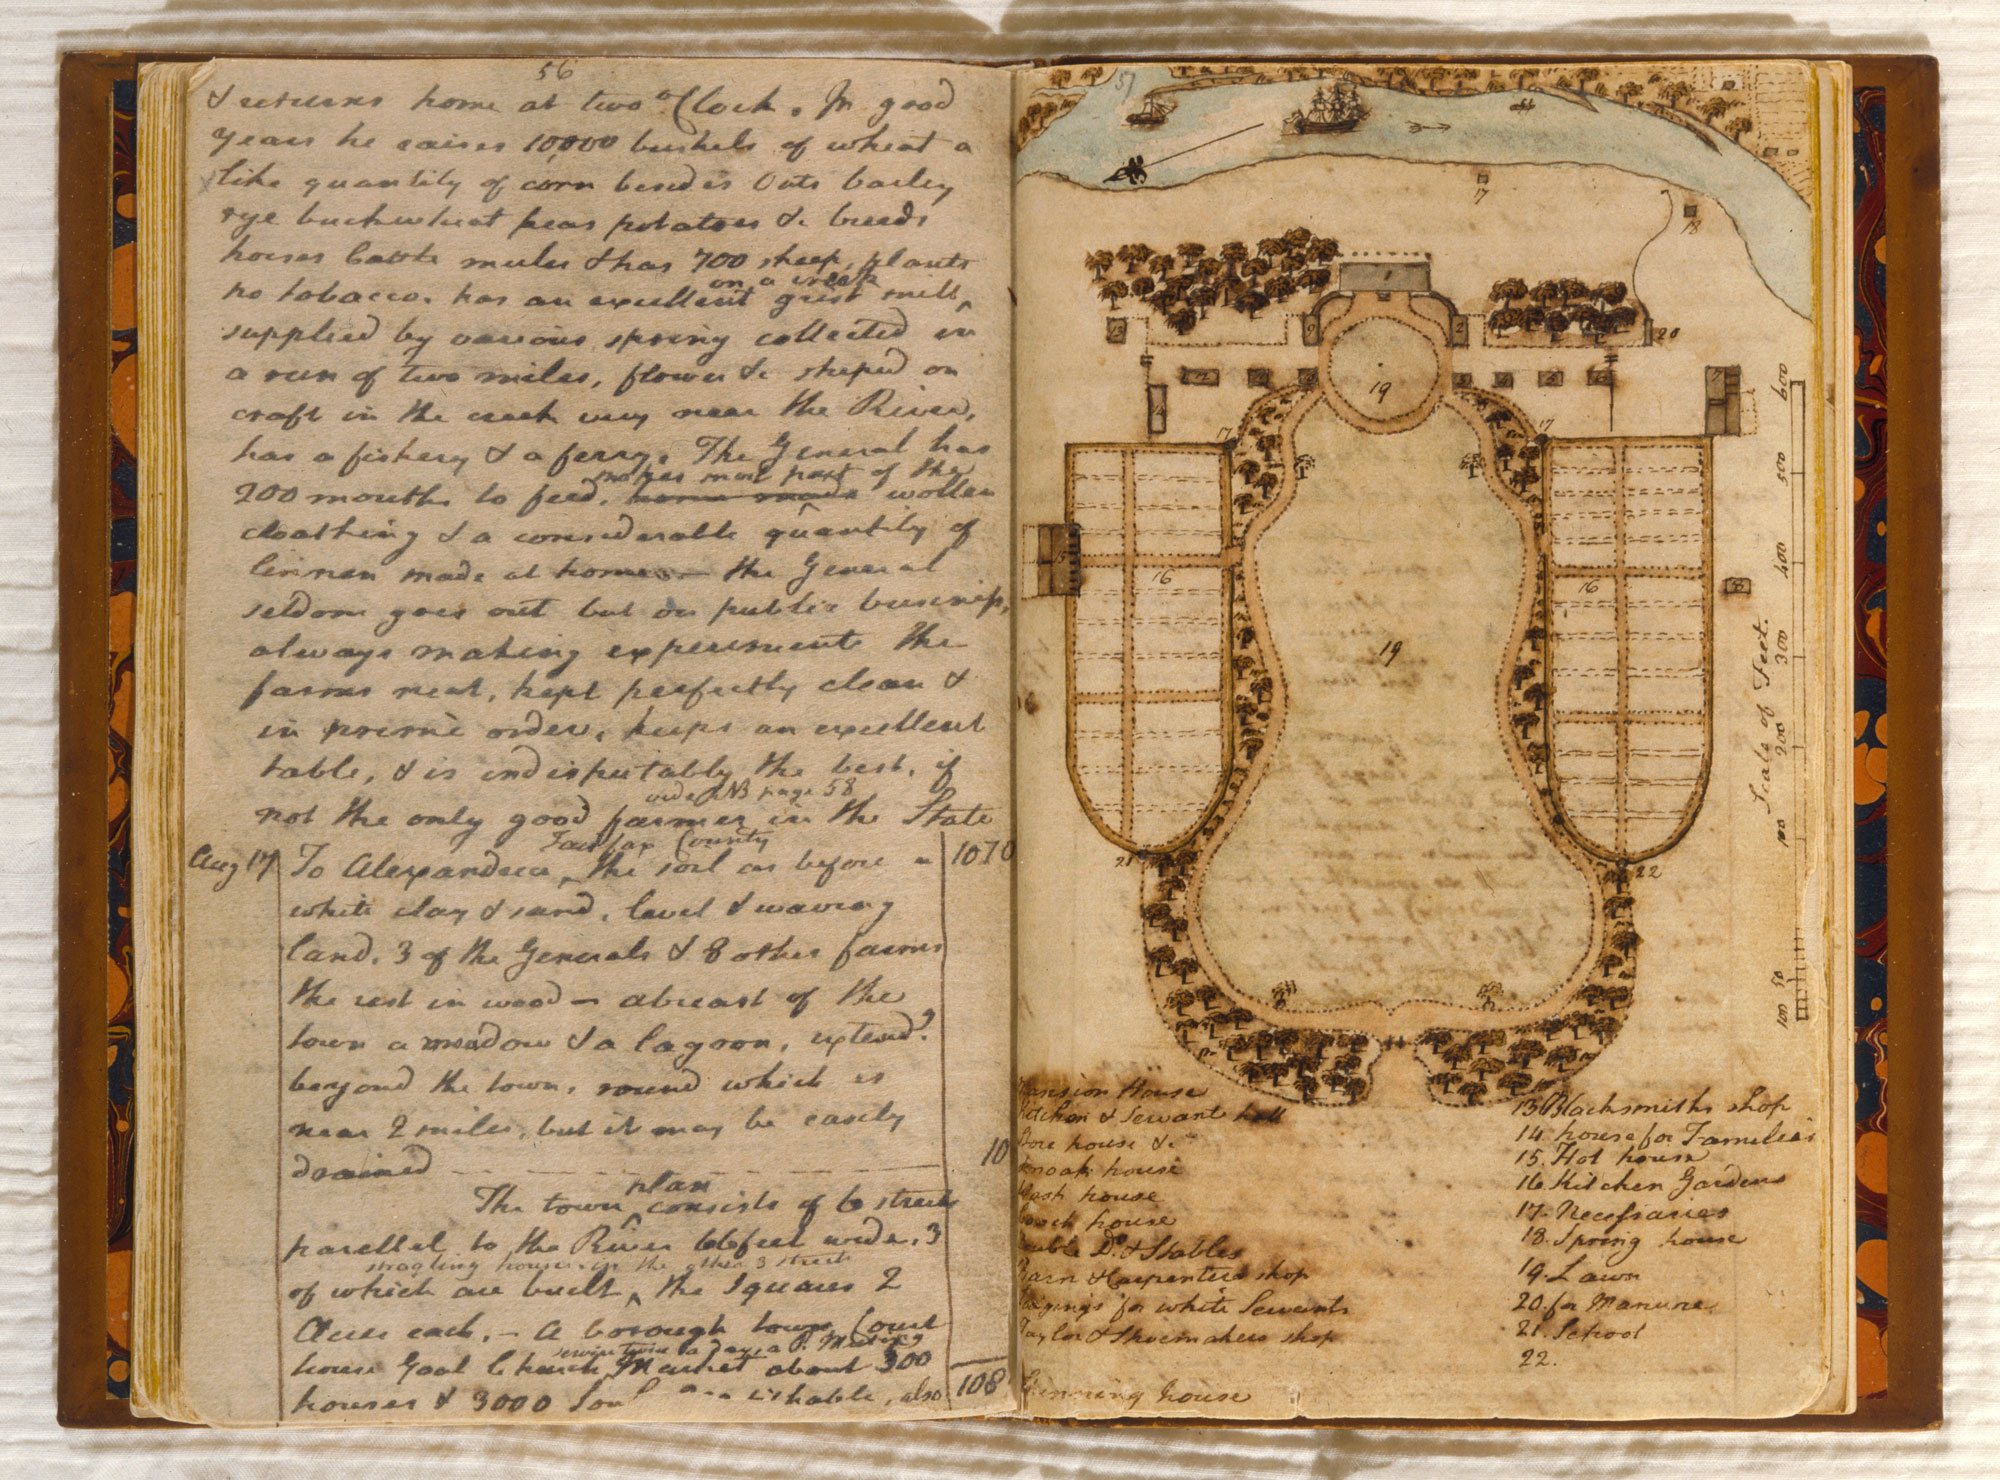 56
& returns home at two o Clock. In good
years he raises 10,000 bushels of wheat a
like quantity of corn besides Oats barley
rye buckwheat peas potatoes &c breeds
horses Cattle mules & has 700 sheep, plants
on a creek
no tobacco. has an excellent grist mill ^
supplied by various spring collected in
a run of two miles, flower &c shiped on
craft in the creek very near the River,
has a fishery & a ferry. The General has
makes most part of the
200 mouths to feed. home made wollen
cloathing & a considerable quantity of
linnen made at home — the General
seldom goes out but on public business,
always making experiments the
farms neat, kept perfectly clean &
in prime order, keeps an excellent
table, & is indisputably the best, if
vide NB page 58
not the only good farmer in the State
Fairfax County
Aug 17 To Alexandria ^ the soil as before a 1070
white clay & sand, level & waving
land. 3 of the Generals & 8 other farms
the rest in wood — abreast of the
town a meadow & a lagoon, extend.g
beyond the town, round which is
near 2 miles, but it may be easily
drained 10
plan
The town ^ consists of 6 streets
parellel to the River 66 feet wide, 3
stragling houses in the other 3 streets
of which are built ^ the Squares 2
Acres each. — A borough town, Court
service twice a day, a P. Meeting
house Goal Church, Market about 300
houses & 3000 Soul also 108
57
17
18
1
13 9 2 20
19
14 7
17 17
15 16 16 8
19
21 22
Scale of Feet.
100 50 100 200 300 400 500 600
Mansion House
Kitchen & Servants hall
Store house &c
Smoak house
Wash house
Coach house
Double Do. & Stables
Barn & Carpenters shop
Lodgings for white Servants
Taylor & Shoemakers shop
Spinning house
13 Blacksmiths shop
14. house for Families
15. Hot house
16 Kitchen Gardens
17. Necessaries
18. Spring house
19. Lawn
20. for Manure
21. School
22.